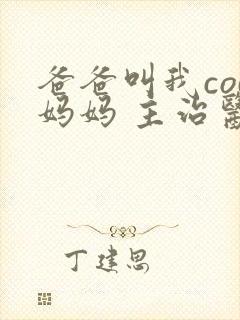 爸爸叫我co
妈妈 主治
丁建思